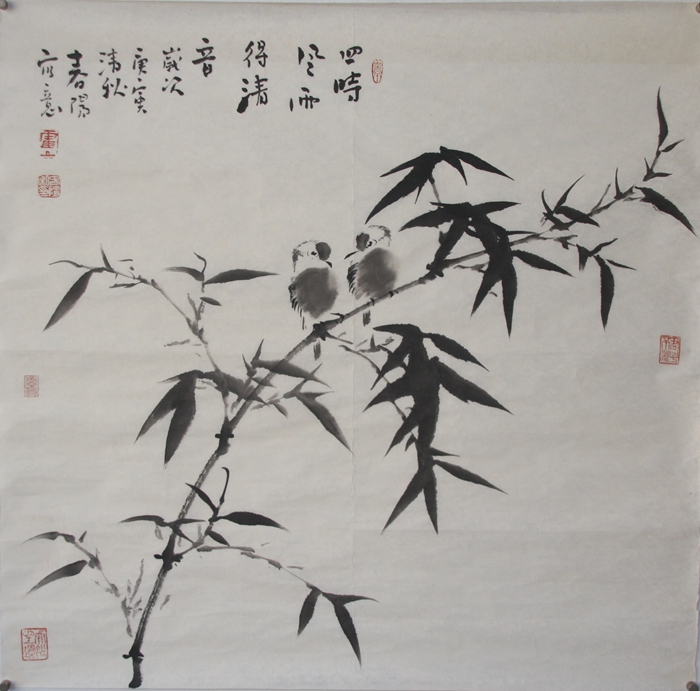 四時
风雨
得清
音
歲次
庚寅
秋
春陽
寫意